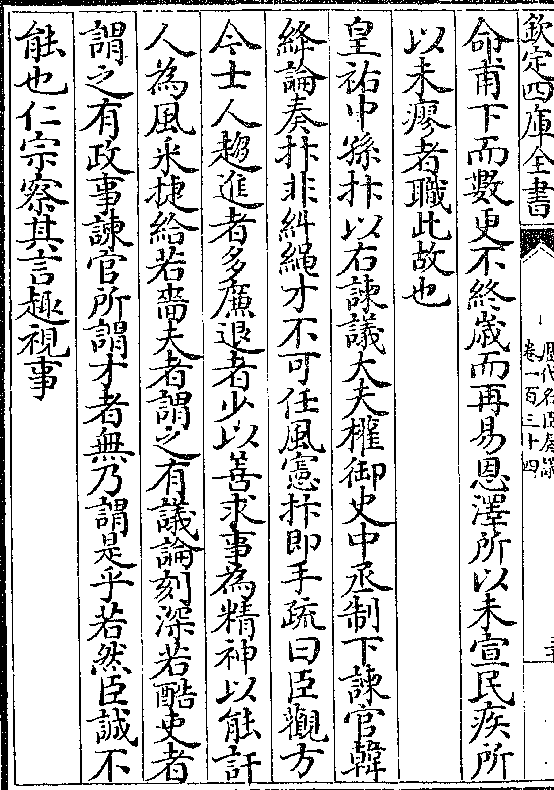 欽定四庫全書
歷代名臣奏議
卷一百三十四
命甫下而數更不終歲而再易恩澤所以未宣民疾所
以未瘳者職此故也
皇祐中孫抃以右諫議大夫權御史中丞制下諫官韓
絳論奏抃非糾繩才不可任風憲抃即手疏曰臣觀方
今士人趨進者多廉退者少以善求事為精神以能訐
人為風采捷給若嗇夫者謂之有議論刻深若酷吏者
謂之有政事諫官所謂才者無乃謂是乎若然臣誠不
能也仁宗察其言趣視事